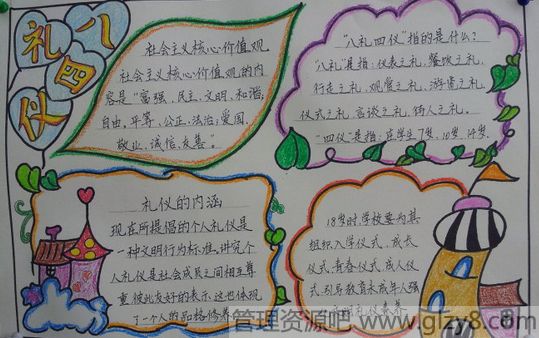 八
礼
四
仪
社会主义核心价值观
社会主义核心价值观的内
容是“富强、民主、文明、和谐,
自由,平等,公正,法治;爱国,
敬业,诚信,友善”。
“八礼四仪”指的是什么?
“八礼”是指:仪表之礼,餐饮之礼,
行走之礼,观赏之礼,游览之礼,
仪式之礼,言谈之礼,待人之礼。
“四仪”是指:在学生7岁,10岁,14岁,
礼仪的内涵
现在所提倡的个人礼仪是
一种文明行为标准,讲究个
人礼仪是社会成员之间相互尊
重,彼此友好的表示,这也体现
了一个人的品格修养
18岁时,学校要为其
组织入学仪式,成长
仪式,青春仪式,成人仪
式,引导教育未成年人强
礼仪素养
管理资源吧 www.glzy8.com